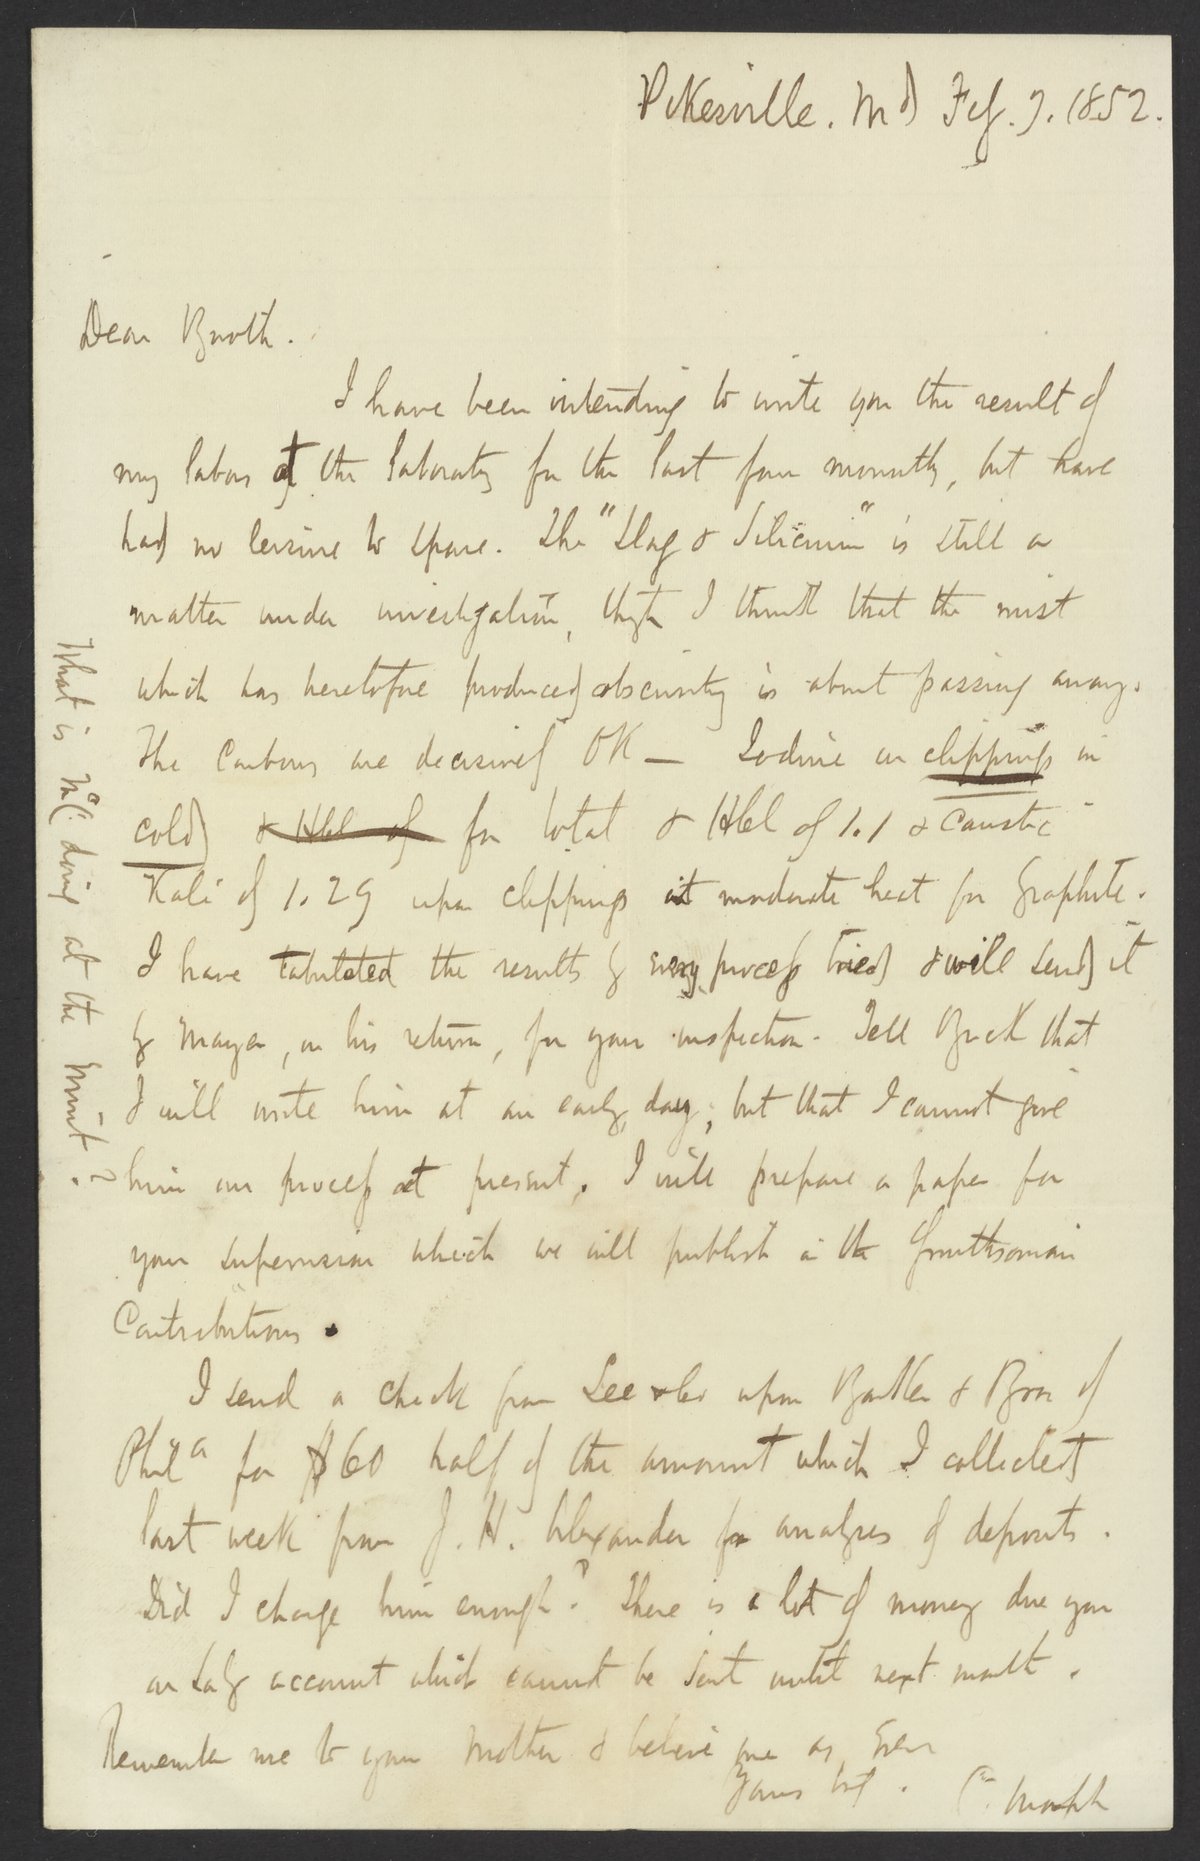 Pikesville. Md Feb. 9. 1852.
Dear Booth.
I have been intending to write you the result of
my labors at the laboratory for the last four months, but have
had no leisure to spare. The "Slag & Silicium" is still a
matter under investigation, though I think that the mist
which has heretofore produced obscurity is about passing away.
The Carbons are decisively OK — Iodine on clippings in
cold & HCl of for total & HCl of 1.1 & Caustic
Kali of 1.29 upon clippings at moderate heat for Graphite.
I have tabulated the results of every process tried & will send it
by Mayer, on his return, for your inspection. Tell Buck that
I will write him at an early day, but that I cannot give
him our process at present. I will prepare a paper for
your supervision which we will publish in the Smithsonian
Contributions.
I send a check from Lee & Co upon & Bros of
Phila for $60 half of the amount which I collected
last week from J. H. Alexander for analyses of deposits.
Did I charge him enough? There is a lot of money due you
on account which cannot be sent until next month.
Remember me to your Mother & believe me as Ever
Yours truly. C. Morfit
What is McC. doing at the Mint?